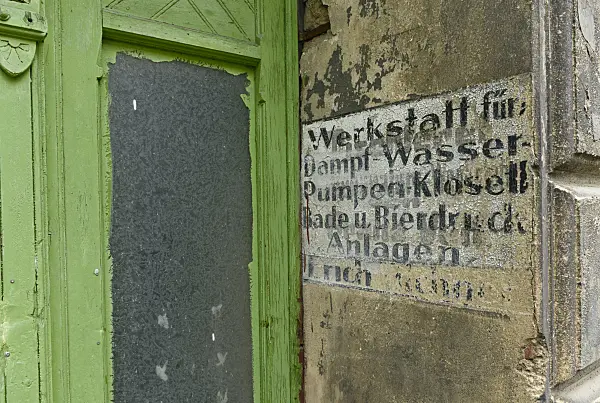 Werkstatt für
Dampf-Wasser-
Pumpen-Klosett
Bade u. Bierdruck
Anlagen
Erich